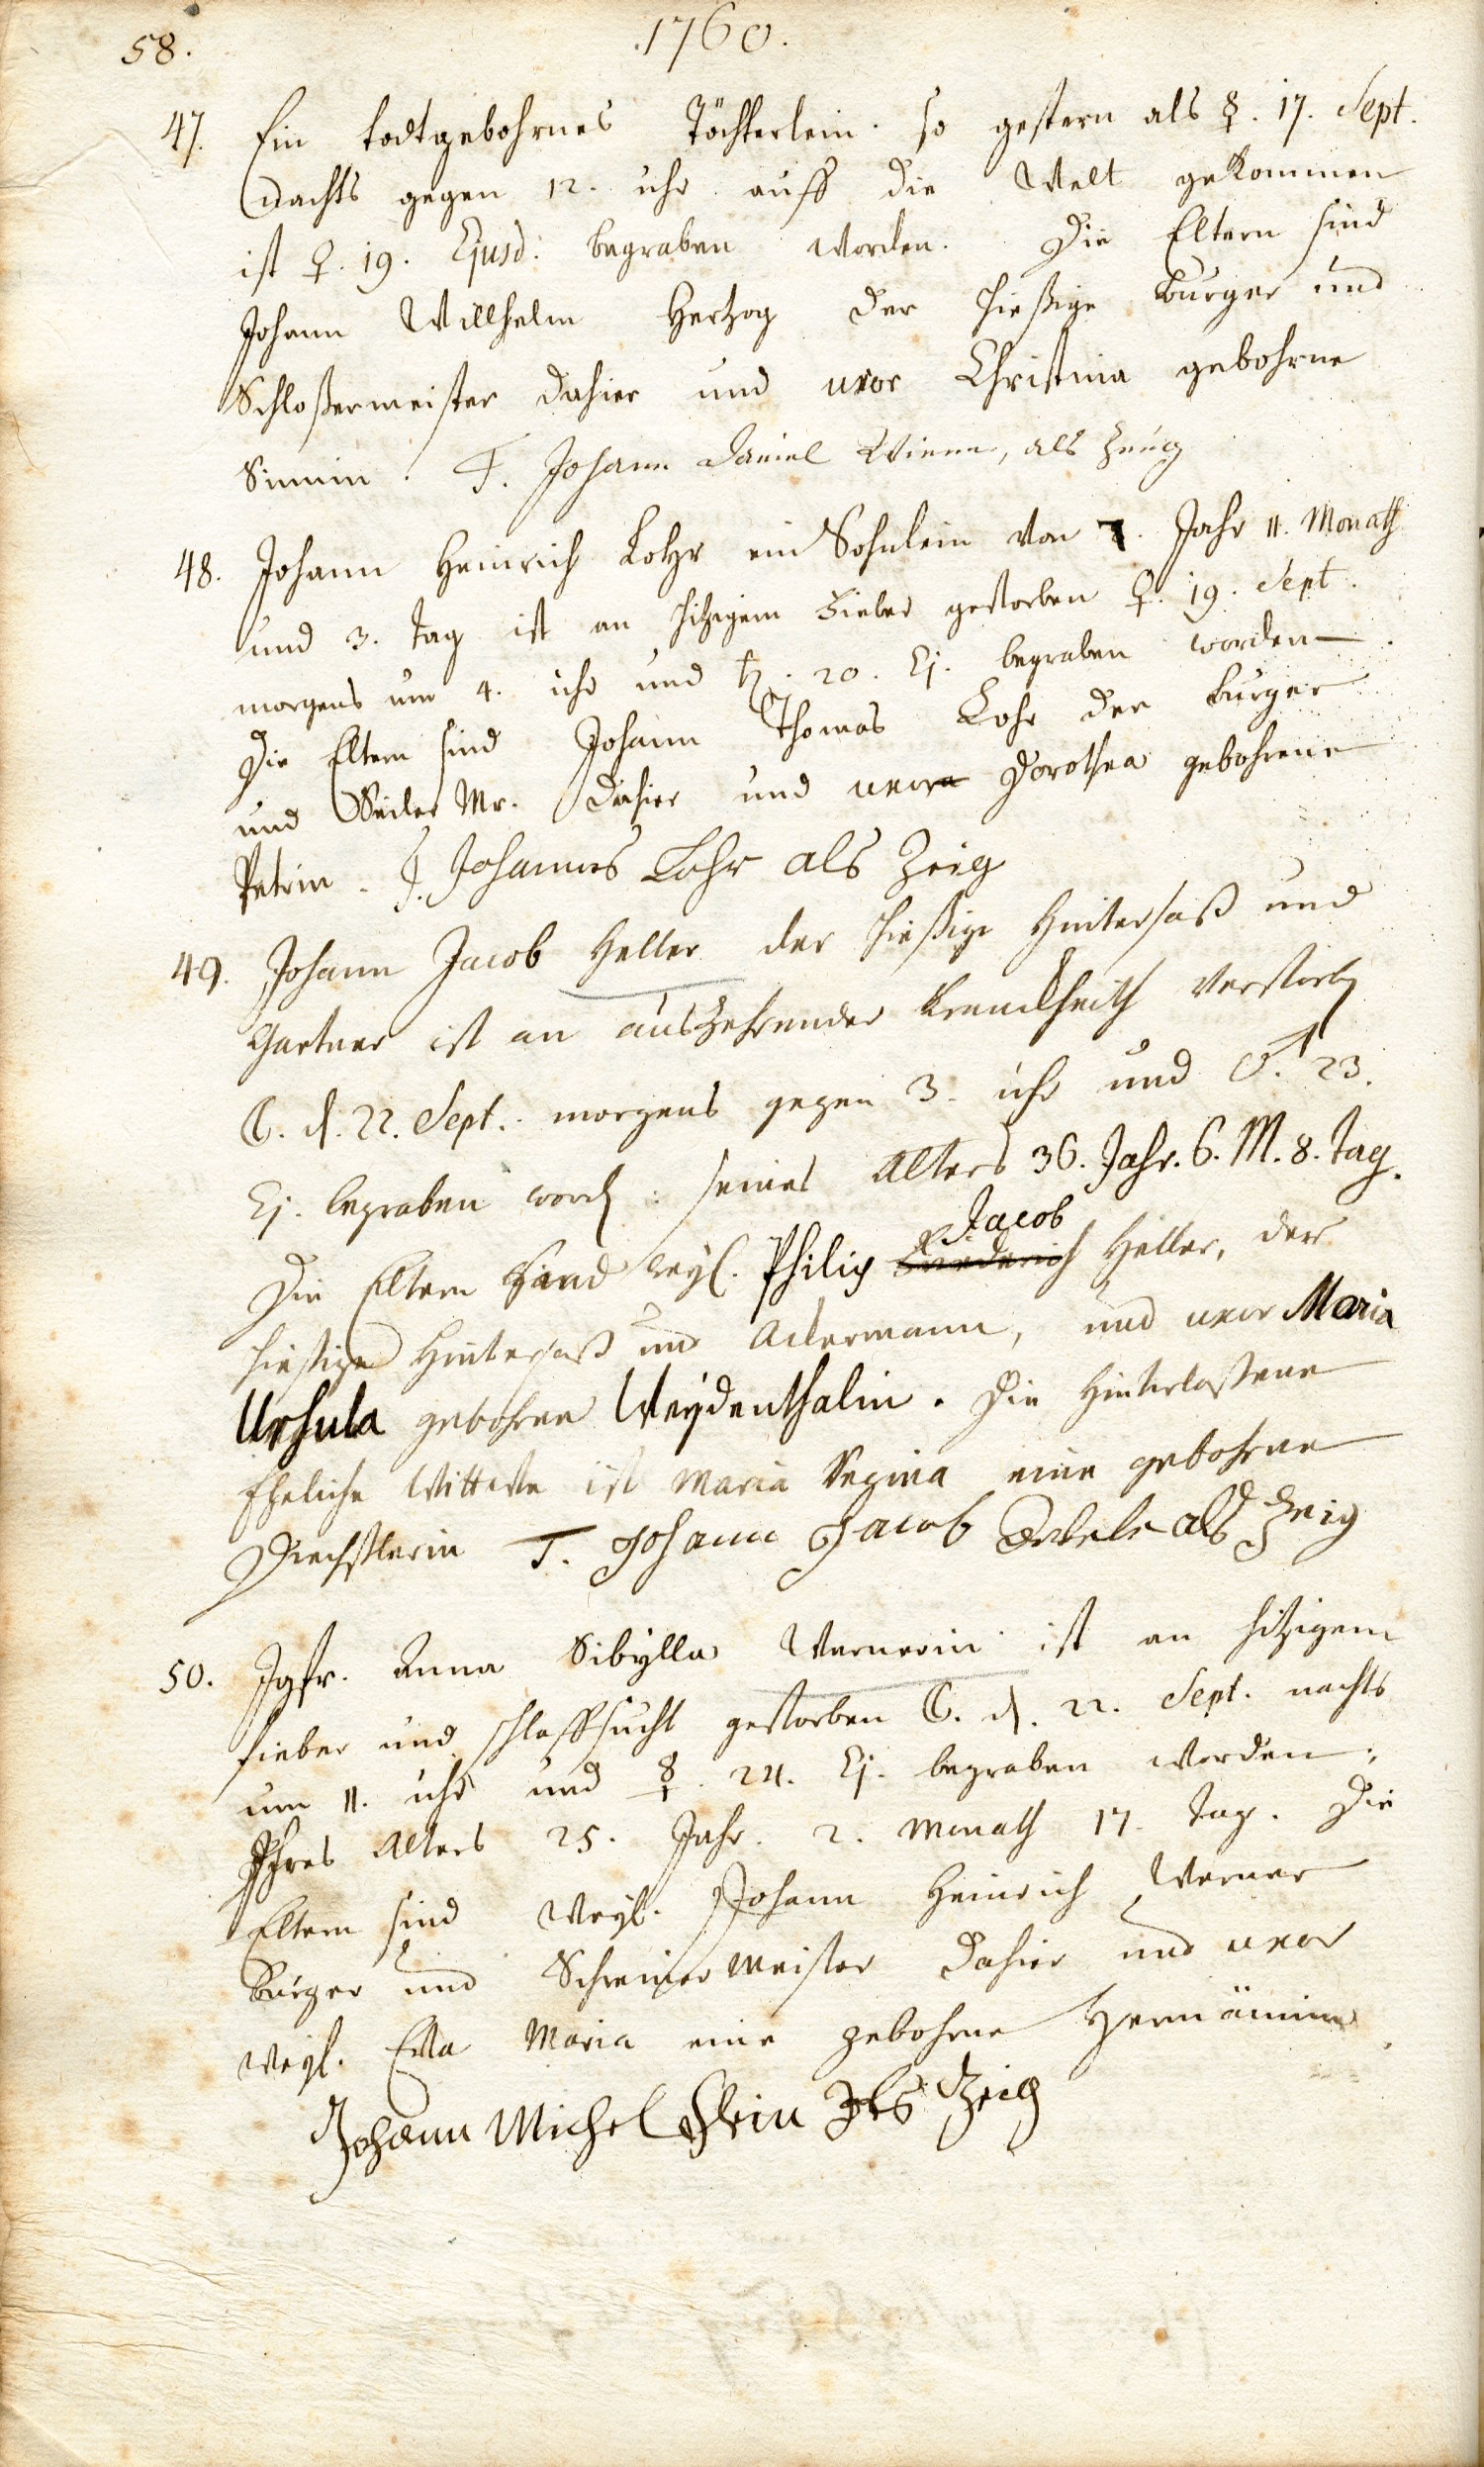 58.
.1760.
47. Ein todtgebohrnes Töchterlein so gestern als ☿. 17. Sept.
Nachts gegen 12. uhr auff die Welt gekommen
ist ♀. 19. Ejusd: begraben worden. Die Eltern sind
Johann Willhelm Hertzog der hießige burger und
Schloßermeister dahier und uxor Christina gebohrne
T. Johann Daniel, als Zeug
48. Johann Heinrich Lohr ein Söhnlein von Jahr 11. Monath
und 3. tag ist an hitzigem Fieber gestorben ♀. 19. Sept.
morgens um 4. uhr und ♄. 20. Ej. begraben worden.
Die Eltern sind Johann Thomas Lohr der burger
und Seiler Mr. dahier und uxor Dorothea gebohrene
Petrin. T. Johannes Lohr als Zeig
49. Johann Jacob Heller der hießige Hintersaß und
Gartner ist an auszehrender Kranckheith verstorben
☾. d. 22. Sept. morgens gegen 3. uhr und ♂. 23.
Ej. begraben word: seines Alters 36. Jahr. 6. M. 8. Tag.
Die Eltern sind weyl. Philip Friederich Jacob Heller, der
hießige Hintersaß und Ackermann, und uxor Maria
Ursula gebohrne Weydenthalin. Die Hinterlaßene
Eheliche Wittwe ist Maria Regina eine gebohrne
Drechßlerin T. Johann Jacob als Zeig
50. Jgfr. Anna Sibylla Wernerin ist an hitzigem
fieber und schlaffsucht gestorben ☾. d. 22. Sept. nachts
um 11. uhr und ☿. 24. Ej. begraben worden:
Ihres Alters 25. Jahr. 2. Monath 17. tag. Die
Eltern sind weyl. Johann Heinrich Werner
burger und Schreiner Meister dahier und uxor
weyl. Eva Maria eine gebohrne Hermännin
Johann Michel Klein als Zeig